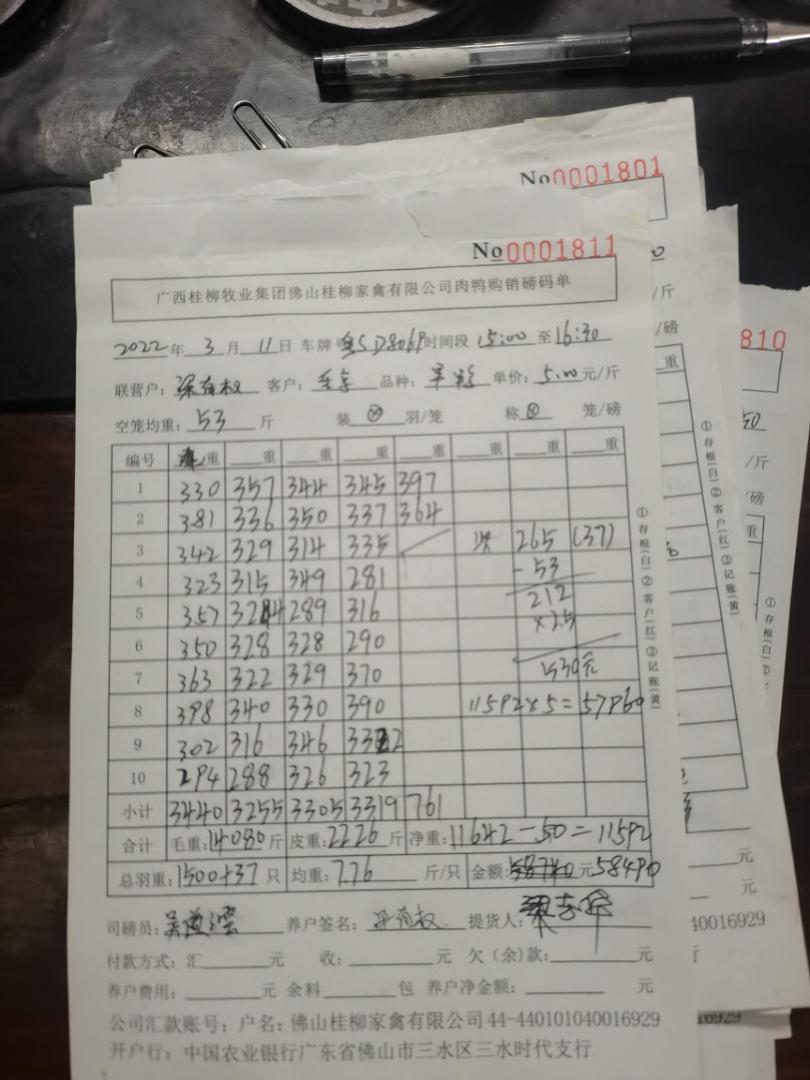 No0001801
No0001811
810
广西桂柳牧业集团佛山桂柳家禽有限公司肉鸭购销磅码单
2022年 3 月 11 日 车牌 时间段 15:00 至 16:30
联营户: 客户: 品种: 单价: 5.00 元/斤
空笼均重: 53 斤 装 ⊗ 羽/笼 称 ⊗ 笼/磅
编号 重 重 重 重 重 重 重 重
1 330 357 344 345 397
2 381 336 350 337 364
3 342 329 314 335 265 (37)
4 323 315 349 281 -53
5 357 324 289 316 212
×2.5
6 350 328 328 290
7 363 322 329 370 530元
8 398 340 330 390 11592×5=57960
9 302 316 346 332
10 294 288 326 323
小计 3440 3255 3305 3319 761
合计 毛重:14080斤 皮重:2226斤 净重:11642-50=11592
总羽重:1500+37只 均重:7.76 斤/只 金额: 元58490
司磅员: 养户签名: 提货人:
付款方式: 汇 元 收: 元 欠(余)款: 元
养户费用: 元 余料 包 养户净金额: 元
公司汇款账号: 户名: 佛山桂柳家禽有限公司 44-440101040016929
开户行: 中国农业银行广东省佛山市三水区三水时代支行
①存根(白)②客户(红)③记账(黄)
/斤
/磅
重
①存根(白)②客户(红)③记账(黄)
50
/斤
/磅
重
①存根(白)②
元
元
40016929
行
元
元
16929